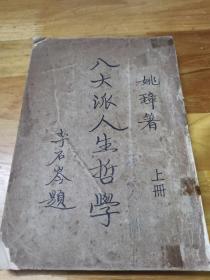 姚璋著
上冊
八大派人生哲學
李石岑題